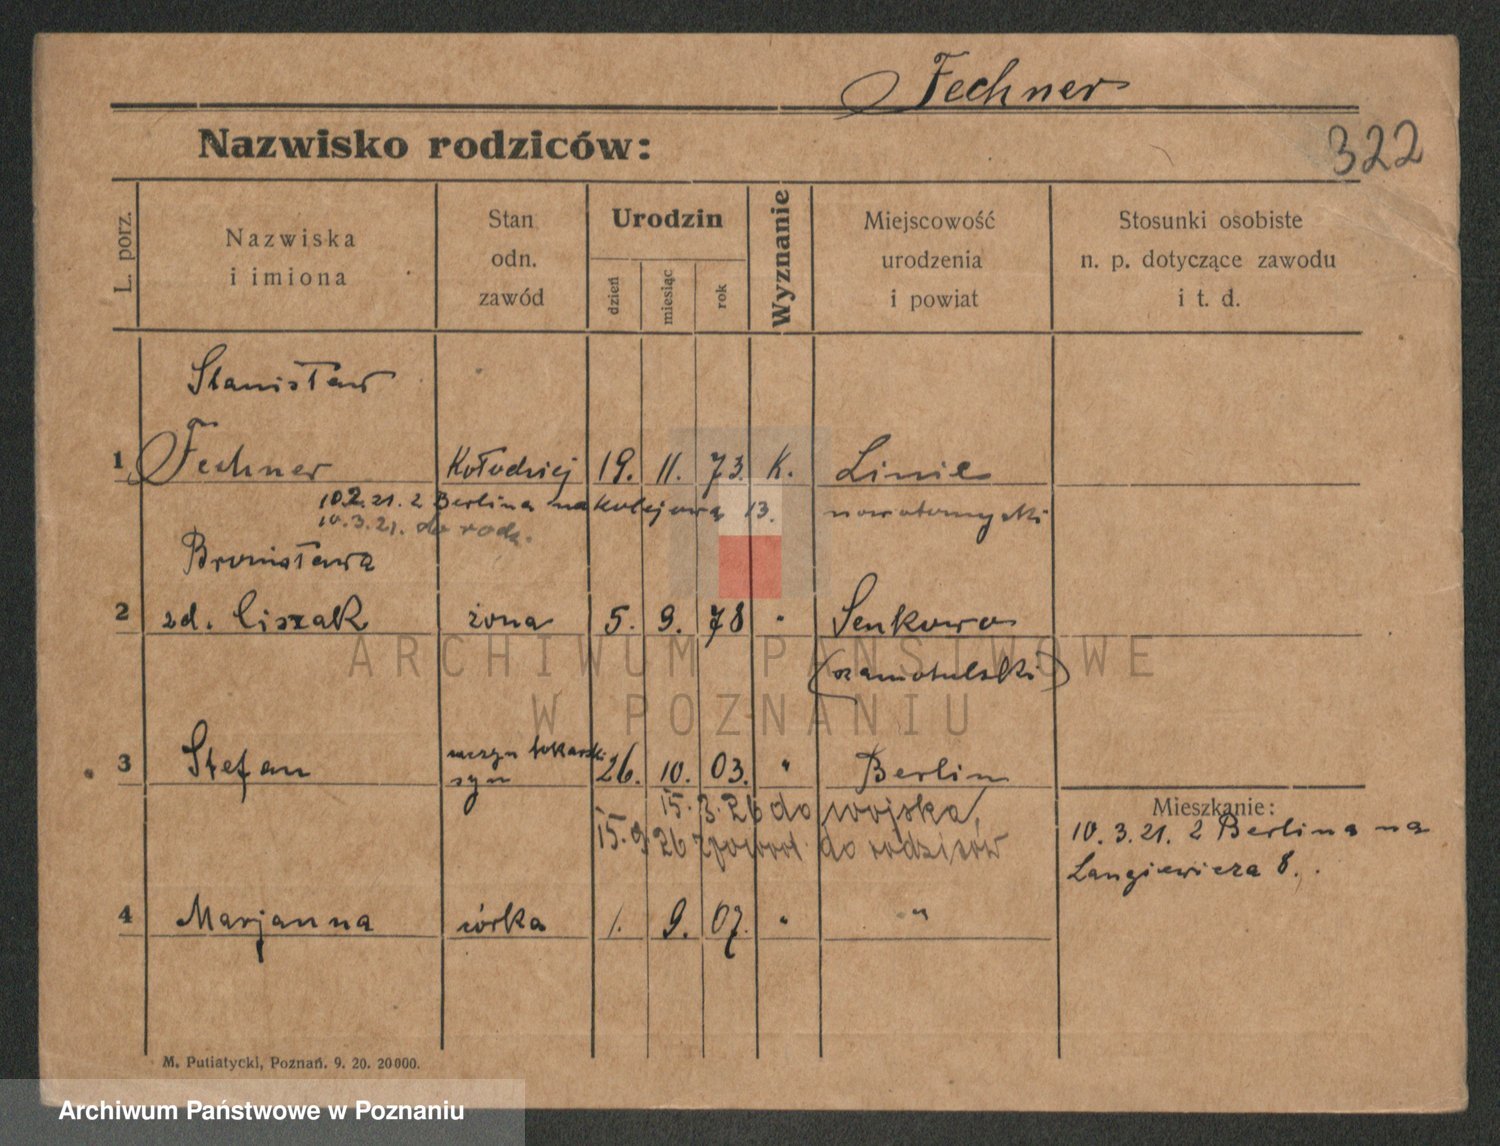 Fechner
Nazwisko rodziców:
322
L. porz.
Nazwiska
i imiona
Stan
odn.
zawód
Urodzin
dzień
miesiąc
rok
Wyznanie
Miejscowość
urodzenia
i powiat
Stosunki osobiste
n. p. dotyczące zawodu
i t. d.
Stanisław
1 Fechner Kołodziej 19. 11. 73. K. Linie
10.2.21. z Berlina na Kolejową 13. nowotomyski
10.3.21. do rodz.
Bronisława
2 zd. Ciszak żona 5. 9. 78 " Senkowo
(szamotulski)
tokarski
3 Stefan syn 26. 10. 03. " Berlin
15. 3. 26 do wojska,
15. 9 26 zpowrot. do rodziców
Mieszkanie:
10. 3. 21. z Berlina na
Langiewicza 8.
4 Marjanna córka 1. 9. 07. " "
M. Putiatycki, Poznań. 9. 20. 20000.
ARCHIWUM PAŃSTWOWE
W POZNANIU
Archiwum Państwowe w Poznaniu